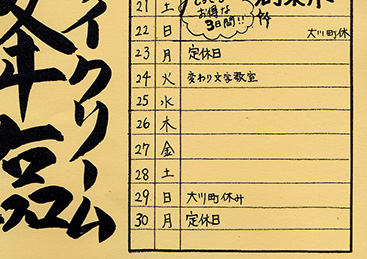 イクリーム
21 土
お得な
3日間!!
22 日 大川町休
23 月 定休日
24 火 変わり文字教室
25 水
26 木
27 金
28 土
29 日 大川町休み
30 月 定休日